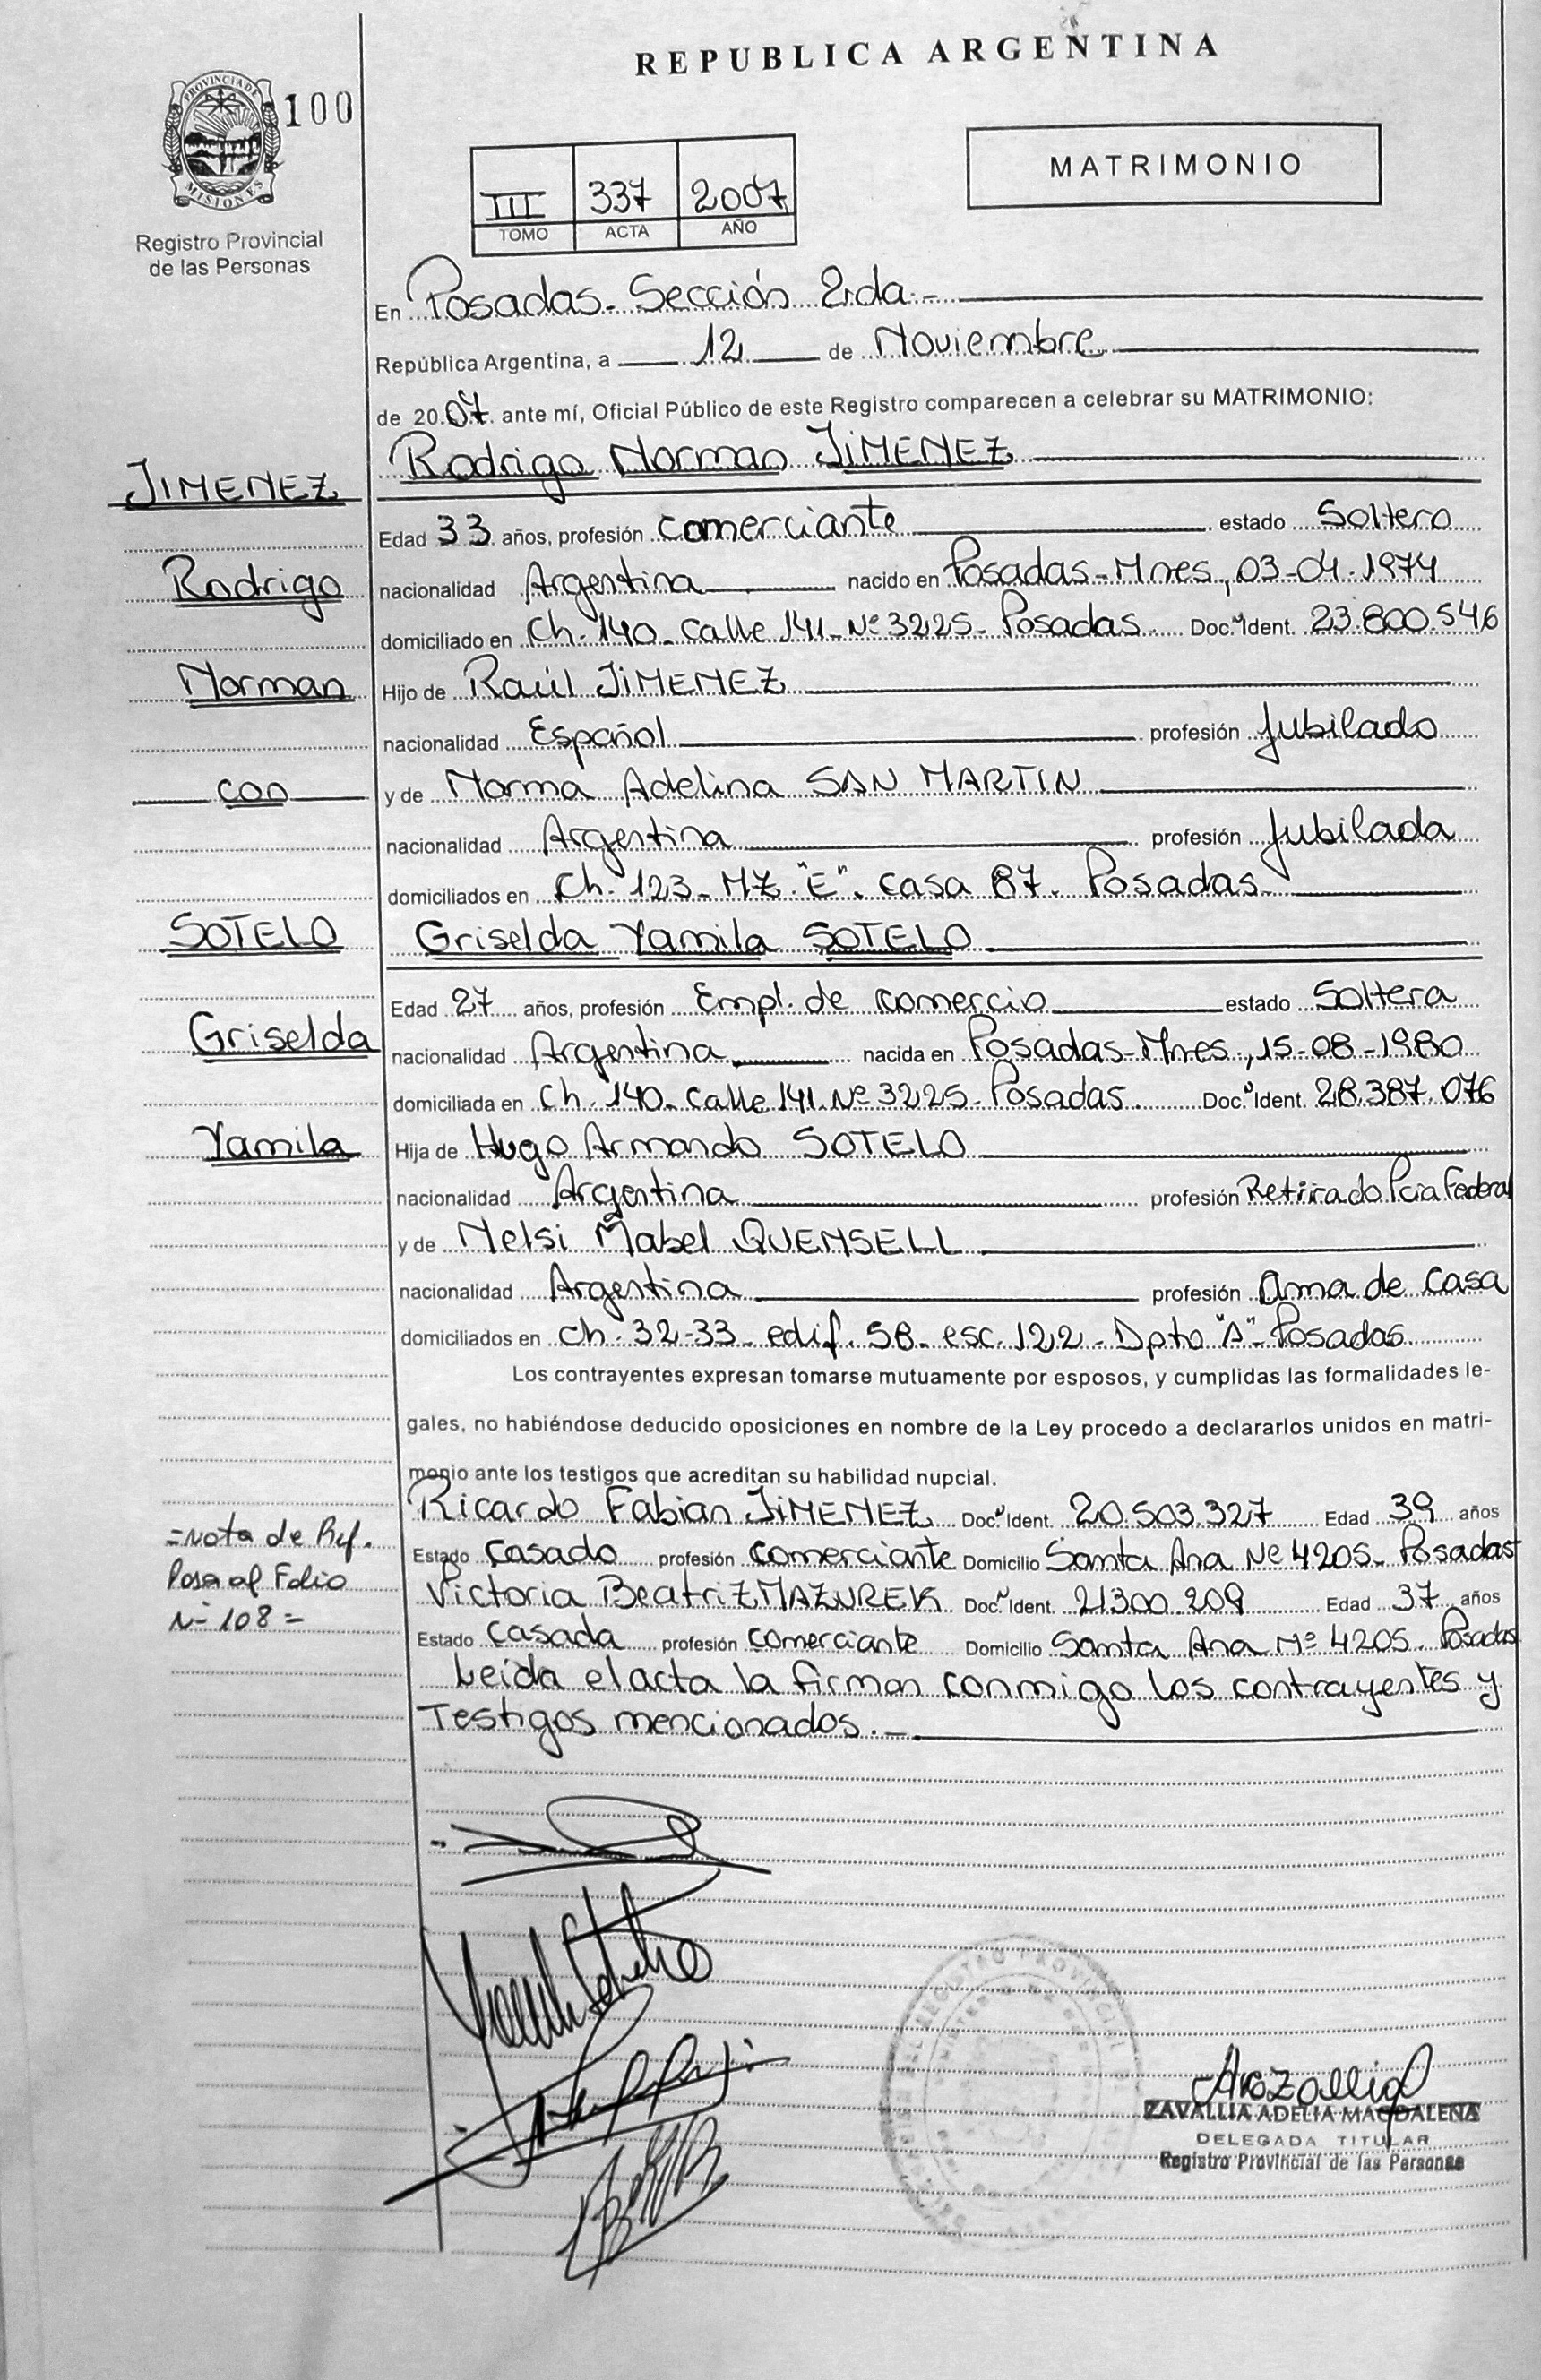 REPUBLICA ARGENTINA
PROVINCIA DE
MISIONES
100
Registro Provincial
de las Personas
III 337 2007
TOMO ACTA AÑO
MATRIMONIO
En Posadas- Sección 2da.-
República Argentina, a 12 de Noviembre
de 2007 ante mí, Oficial Público de este Registro comparecen a celebrar su MATRIMONIO:
Rodrigo Norman JIMENEZ
JIMENEZ
Edad 33 años, profesión comerciante estado Soltero
Rodrigo nacionalidad Argentina nacido en Posadas-Mnes, 03-04-1974
domiciliado en Ch. 140- Calle 141- Nº 3225- Posadas. Doc. Ident. 23.800.546
Norman Hijo de Raúl JIMENEZ
nacionalidad Español profesión Jubilado
con y de Norma Adelina SAN MARTIN
nacionalidad Argentina profesión Jubilada
domiciliados en Ch. 123- MZ "E". Casa 87. Posadas-
SOTELO Griselda Yamila SOTELO
Edad 27 años, profesión Empl. de comercio estado Soltera
Griselda nacionalidad Argentina nacida en Posadas-Mnes, 15-08-1980
domiciliada en Ch. 140- Calle 141- Nº 3225- Posadas. Doc. Ident. 28.387.076
Yamila Hija de Hugo Armando SOTELO
nacionalidad Argentina profesión Retirado Pcia Federal
y de Nelsi Mabel QUENSELL
nacionalidad Argentina profesión ama de casa
domiciliados en Ch. 32-33- edif. 58- esc. 122- Dpto "A"- Posadas.
Los contrayentes expresan tomarse mutuamente por esposos, y cumplidas las formalidades le-
gales, no habiéndose deducido oposiciones en nombre de la Ley procedo a declararlos unidos en matri-
monio ante los testigos que acreditan su habilidad nupcial.
Ricardo Fabian JIMENEZ Doc. Ident. 20.503.327 Edad 39 años
=Nota de Ref.
Estado Casado profesión comerciante Domicilio Santa Ana Nº 4205- Posadas
Pasa al Folio
Victoria Beatriz MAZUREK Doc. Ident. 21300.209 Edad 37 años
Nº 108=
Estado Casada profesión comerciante Domicilio Santa Ana Nº 4205. Posadas
Leida el acta la firman conmigo los contrayentes y
Testigos mencionados.-
ZAVALLIA ADELIA MAGDALENA
DELEGADA TITULAR
Registro Provincial de las Personas